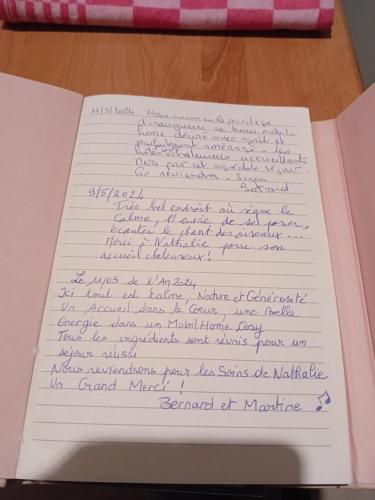 11/3/2024 Nous avons eu le privilège
d'inaugurer ce beau mobil-
home décoré avec goût et
parfaitement aménagé. Les
hôtes chaleureux accueillants
Merci pour cet agréable séjour.
On reviendra.
9/5/2024
Très bel endroit où règne le
calme, l'envie de se poser,
écouter le chant des oiseaux...
Merci à Nathalie pour son
accueil chaleureux!
Le 11/05 de l'An 2024
Ici tout est Calme, Nature et Générosité
Un Accueil dans le Coeur, une Belle
Energie dans un Mobil Home Cosy
Tous les ingrédients sont réunis pour un
séjour réussi
Nous reviendrons pour les Soins de Nathalie
Un Grand Merci!
Bernard et Martine